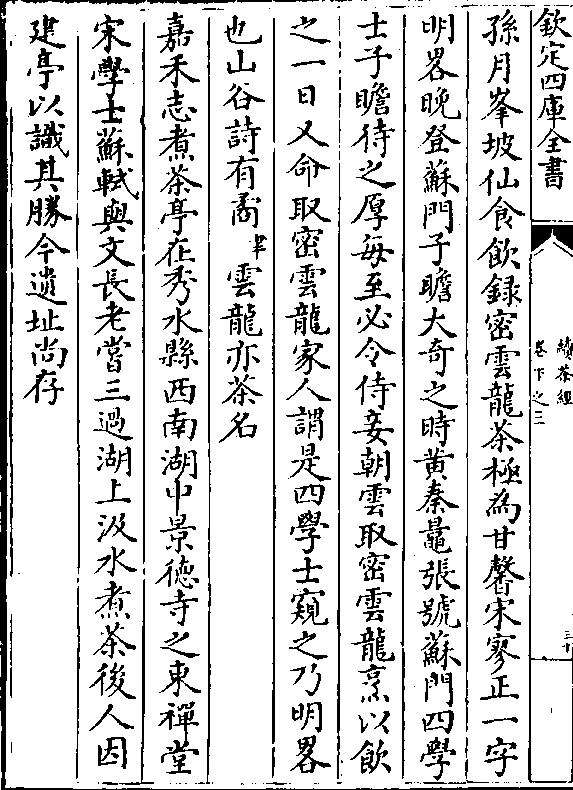 欽定四庫全書
續茶經
卷下之三
三十
孫月峯坡仙食飲録密雲龍茶極為甘馨宋寥正一字
明畧晚登蘇門子瞻大奇之時黄秦鼂張號蘇門四學
士子瞻待之厚每至必令侍妾朝雲取密雲龍烹以飲
之一日又命取密雲龍家人謂是四學士窺之乃明畧
也山谷詩有矞聿雲龍亦茶名
嘉禾志煮茶亭在秀水縣西南湖中景徳寺之東禪堂
宋學士蘇軾與文長老嘗三過湖上汲水煮茶後人因
建亭以識其勝今遺址尚存